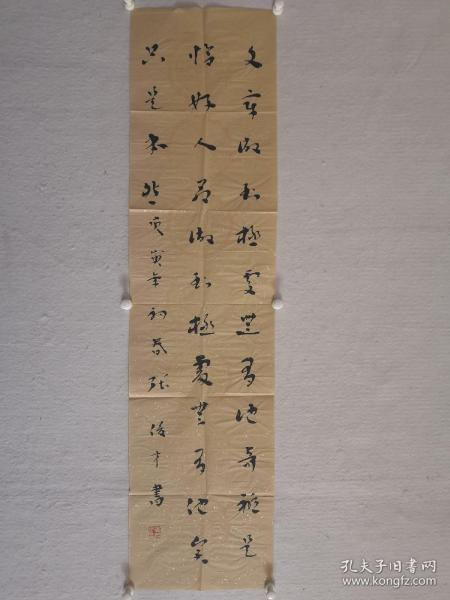 文章做到極處無有他奇祇是
恰好人品做到極處無有他異
只是本然庚寅年初春张書
孔夫子旧书网
www.kongfz.com